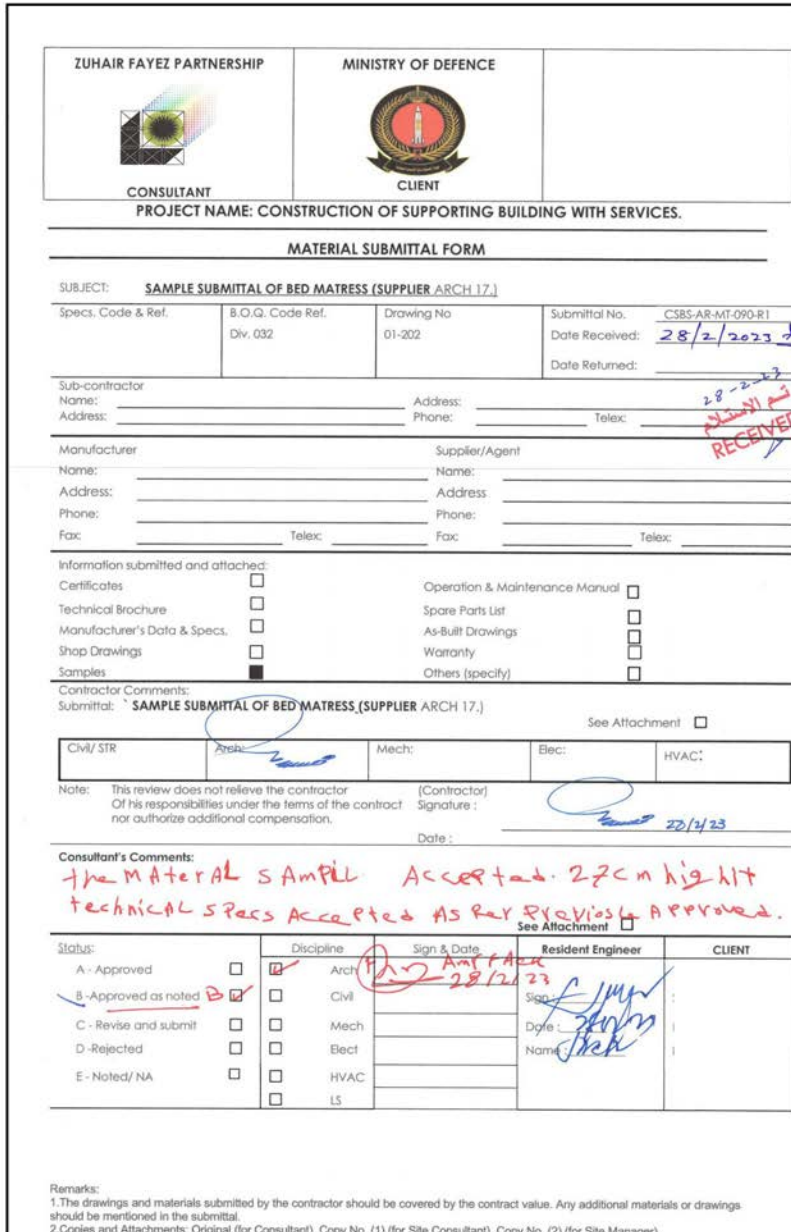 ZUHAIR FAYEZ PARTNERSHIP
CONSULTANT
MINISTRY OF DEFENCE
CLIENT
PROJECT NAME: CONSTRUCTION OF SUPPORTING BUILDING WITH SERVICES.
MATERIAL SUBMITTAL FORM
SUBJECT: SAMPLE SUBMITTAL OF BED MATRESS (SUPPLIER ARCH 17.)
Specs. Code & Ref.
B.O.Q. Code Ref.
Div. 032
Drawing No
01-202
Submittal No. CSBS-AR-MT-090-R1
Date Received: 28/2/2023
Date Returned:
28-2-23
تم الاستلام
RECEIVED
Sub-contractor
Name: Address:
Address: Phone: Telex:
Manufacturer Supplier/Agent
Name: Name:
Address: Address
Phone: Phone:
Fax: Telex: Fax: Telex:
Information submitted and attached:
Certificates Operation & Maintenance Manual
Technical Brochure Spare Parts List
Manufacturer's Data & Specs. As-Built Drawings
Shop Drawings Warranty
Samples Others (specify)
Contractor Comments:
Submittal: ` SAMPLE SUBMITTAL OF BED MATRESS (SUPPLIER ARCH 17.)
See Attachment
Civil/ STR Arch: Mech: Elec: HVAC:
Note: This review does not relieve the contractor (Contractor)
Of his responsibilities under the terms of the contract Signature :
nor authorize additional compensation. 28/2/23
Date :
Consultant's Comments:
the MAterAL SAmpLL Accepted. 27cm highlt
technicAL specs Accepted As Per Previosly Approved.
See Attachment
Status: Discipline Sign & Date Resident Engineer CLIENT
A - Approved Arch
28/2/23
B -Approved as noted B Civil Sign :
C - Revise and submit Mech Date :
D -Rejected Elect Name :
E - Noted/ NA HVAC
LS
Remarks:
1.The drawings and materials submitted by the contractor should be covered by the contract value. Any additional materials or drawings
should be mentioned in the submittal.
2.Copies and Attachments: Original (for Consultant), Copy No. (1) (for Site Consultant), Copy No. (2) (for Site Manager)